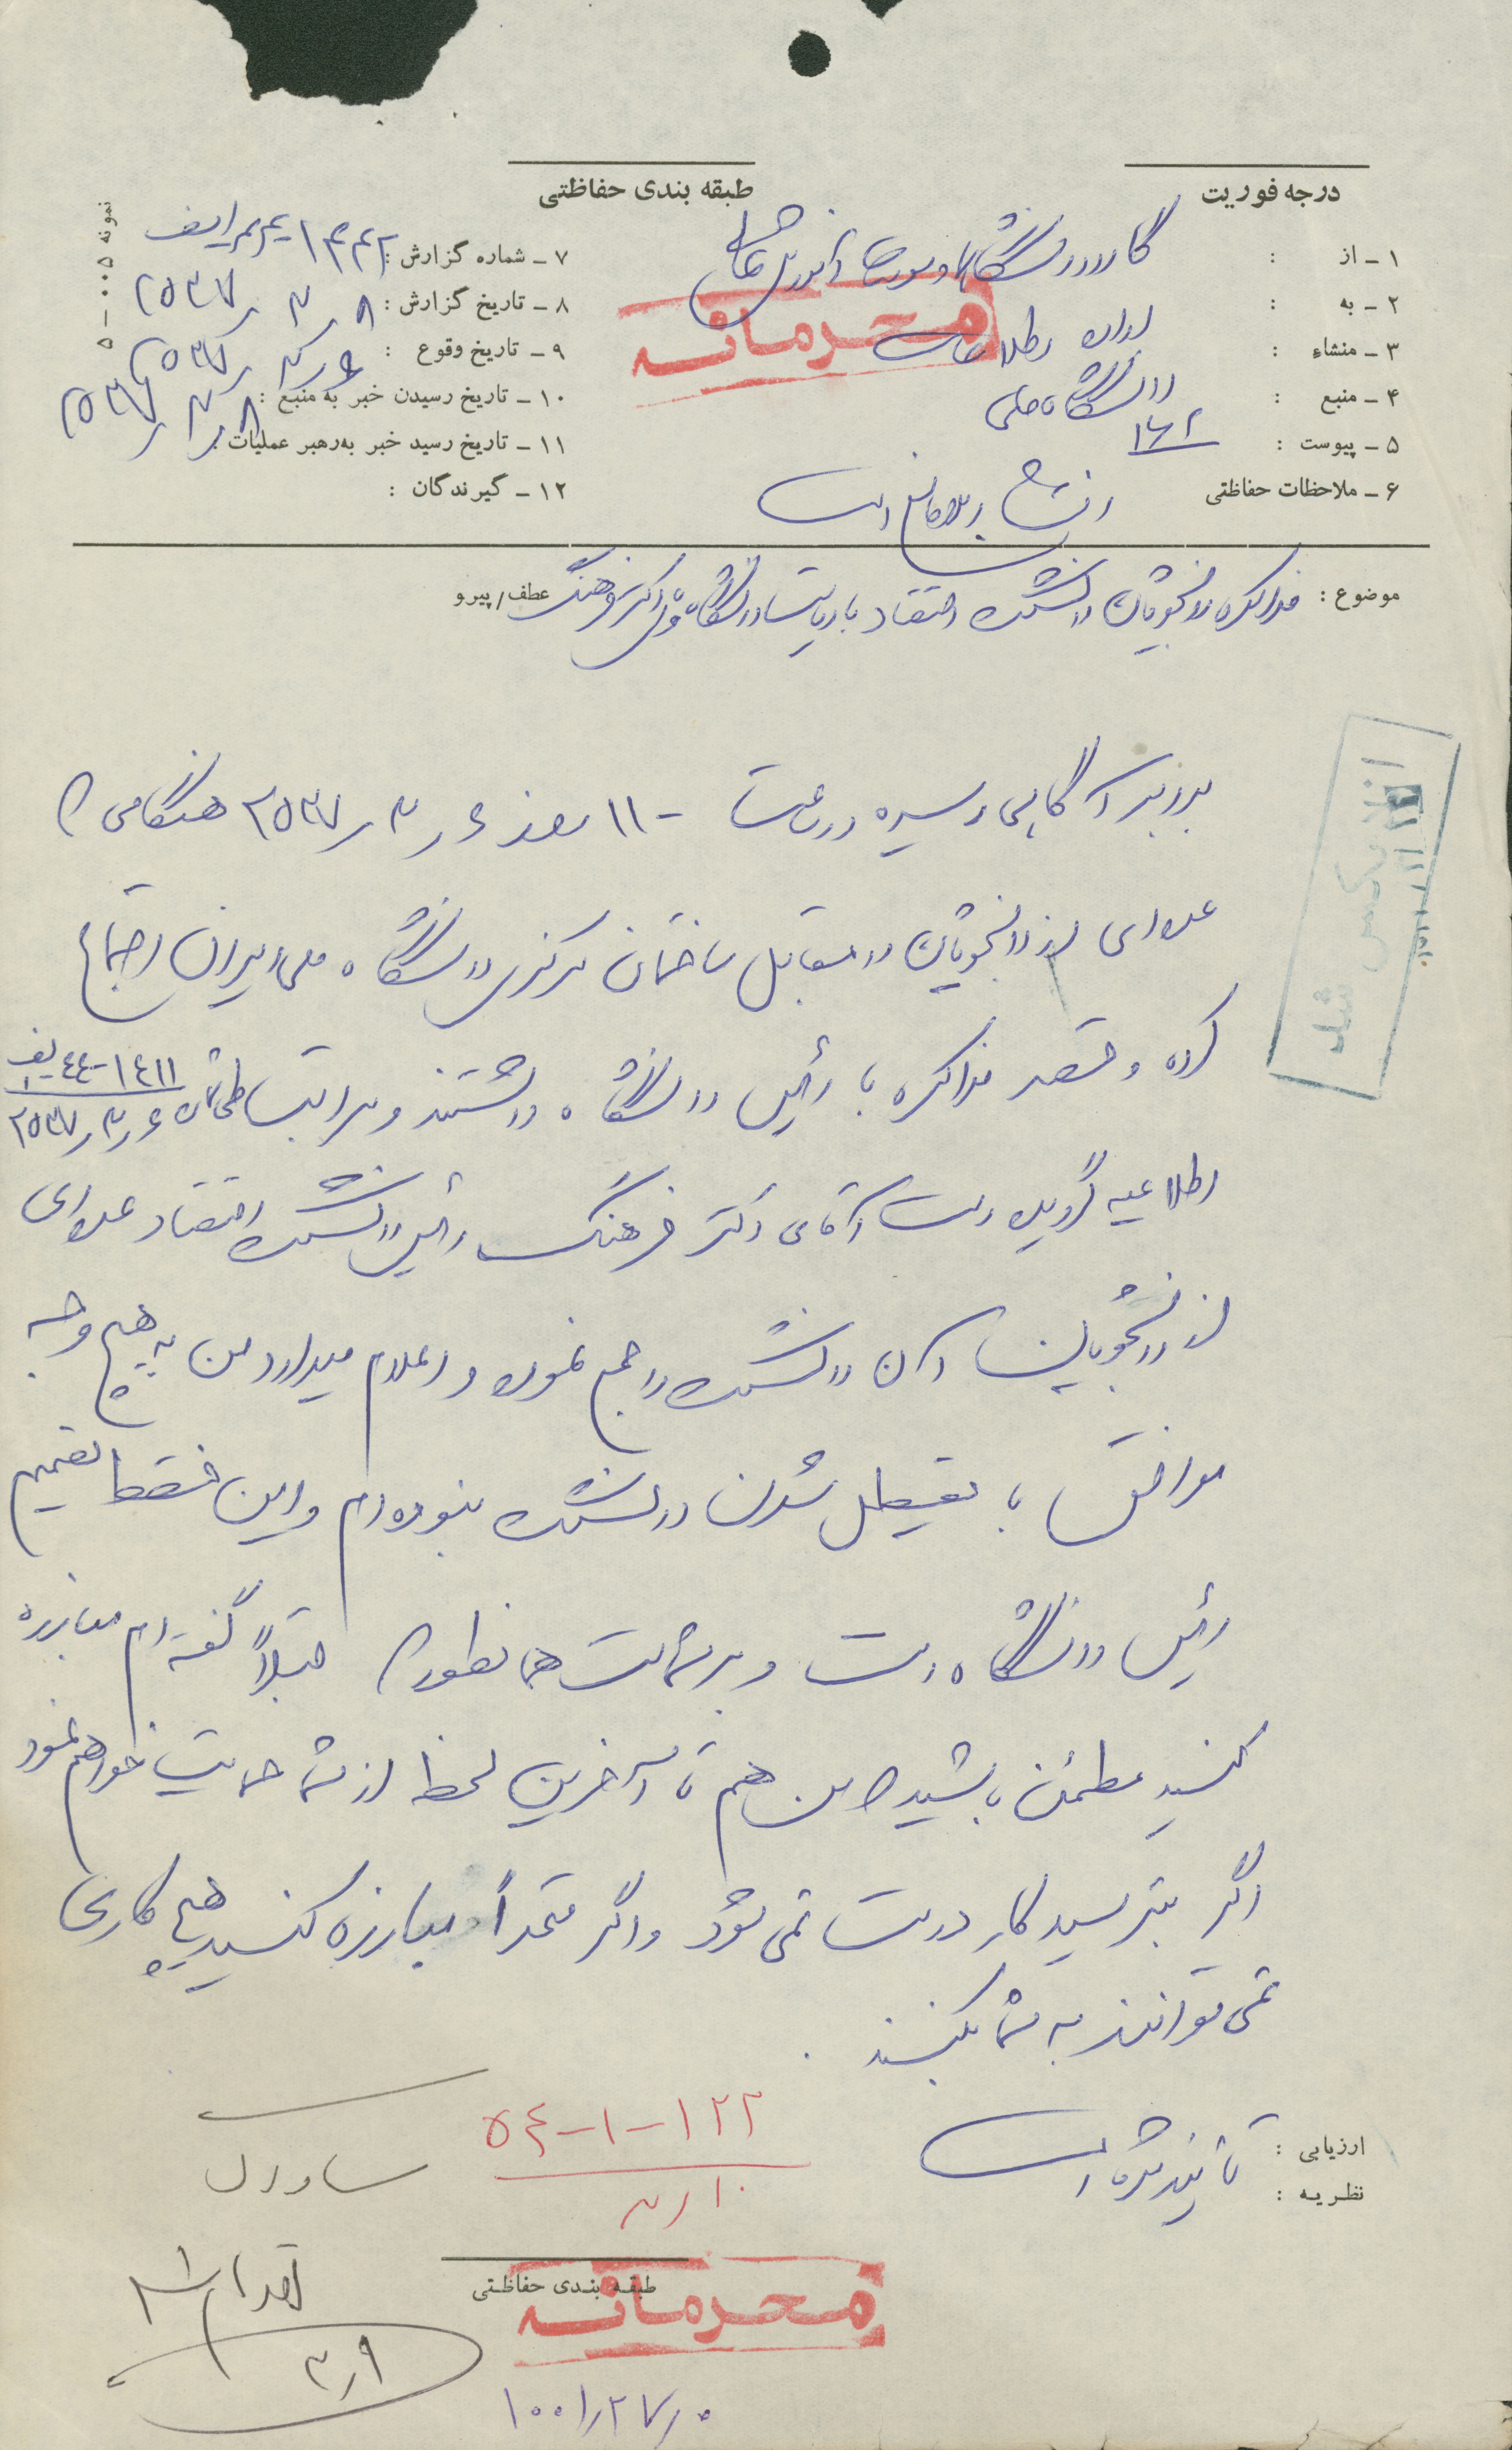 درجه فوریت
طبقه بندی حفاظتی
نمونه ۰۰۵ـ۵
۱ ـ از : گارد دانشگاه
۲ ـ به :
محرمانه
۳ ـ منشاء : اطلاعات
۴ ـ منبع : دانشگاه ملی
۵ ـ پیوست :
۶ ـ ملاحظات حفاظتی است
۷ ـ شماره گزارش :
۸ ـ تاریخ گزارش : ۸ر۳ر۲۵۳۷
۹ ـ تاریخ وقوع : ۶ر۳ر۲۵۳۷
۱۰ ـ تاریخ رسیدن خبر به منبع :
۱۱ ـ تاریخ رسید خبر به رهبر عملیات : ۸ر۳ر۲۵۳۷
۱۲ ـ گیرندگان :
موضوع : مذاکره دانشجویان دانشکده اقتصاد با ریاست دانشگاه و دکتر فرهنگ
عطف / پیرو
آگاهی رسیده در ساعت ۱۱۰۰ روز ۶ر۳ر۲۵۳۷ هنگامی که
عده‌ای از دانشجویان در مقابل ساختمان مرکزی دانشگاه ملی ایران اجتماع
کرده و قصد مذاکره با رئیس دانشگاه داشتند و مراتب طی شماره ۱۴۱۱-۴۴ ۶ر۳ر۲۵۳۷
اطلاعیه گردیده است آقای دکتر فرهنگ رئیس دانشکده اقتصاد عده‌ای
از دانشجویان آن دانشکده را جمع نموده و اعلام میدارد من به هیچ وجه
موافق با تعطیل شدن دانشکده نبوده‌ام و این فقط تصمیم
رئیس دانشگاه است و بر شماست همانطور که قبلاً گفته‌ام مبارزه
کنید مطمئن باشید که من هم تا آخرین لحظه از شما حمایت خواهم نمود
اگر بترسید کار درست نمی‌شود و اگر متحداً مبارزه کنید هیچ کاری
نمی‌توانند به شما بکنند .
ارزیابی : تائید شده است
نظریه :
۱۲۲-۱-۵۴
۱۰ر۳
ساواک
طبقه بندی حفاظتی
محرمانه
۳ر۹